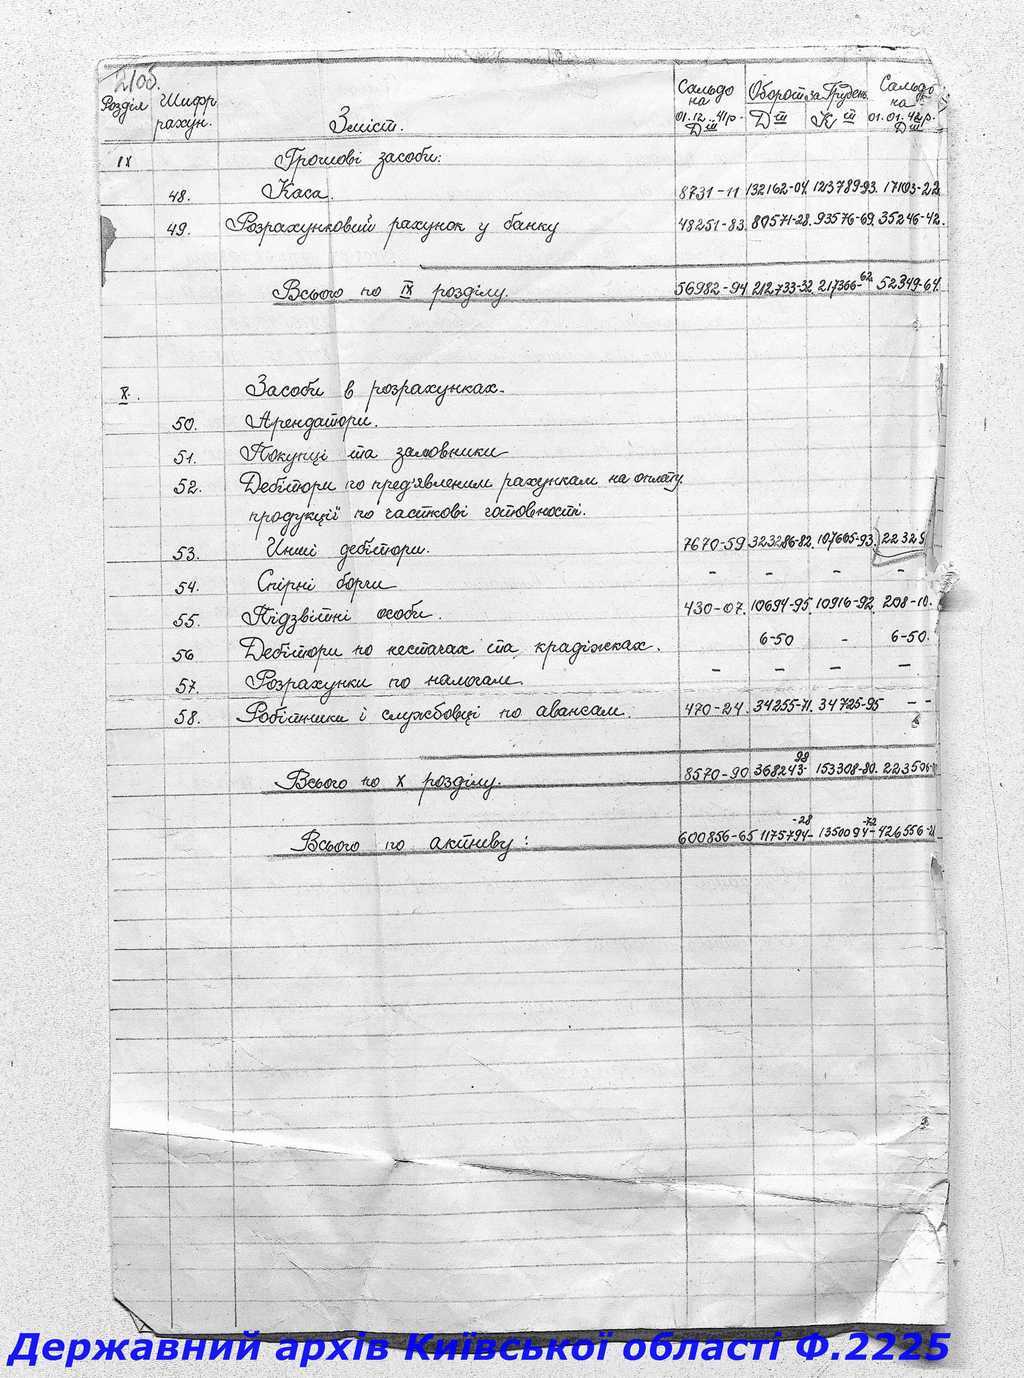 2/об.
Розділ Шифр рахун. Зміст. Сальдо на 01.12.41р. Дт Оборот за Грудень Дт Кт Сальдо на 01.01.42р. Дт
IX Грошові засоби:
48. Каса. 8731-11 132162-04. 123789-93. 17103-22
49. Розрахунковий рахунок у банку 48251-83. 80571-28. 93576-69. 35246-42.
Всього по IX розділу. 56982-94 212733-32 217366-62 52349-64
X. Засоби в розрахунках.
50. Арендатори.
51. Покупці та замовники
52. Дебітори по пред'явленим рахункам на оплату
продукції по часткові готовності.
53. Инші дебітори. 7670-59 323286-82. 107665-93. 22325
54. Спірні борги - - - -
55. Підзвітні особи. 430-07. 10694-95. 10916-92. 208-10.
56 Дебітори по нестачах та крадіжках. 6-50 - 6-50.
57. Розрахунки по налогам - - - -
58. Робітники і службовці по авансам. 470-24. 34255-71. 34725-95 - -
Всього по X розділу. 8570-90 368243-98 153308-80. 223506-
Всього по активу: 600856-65 1175794-28 1350094-72 426556-21
Державний архів Київської області Ф.2225